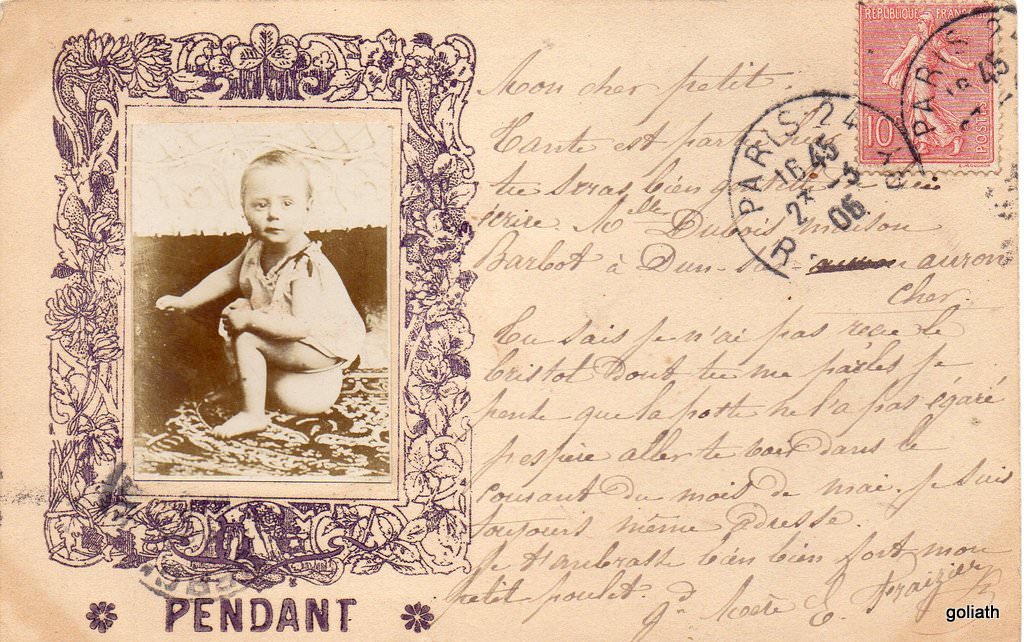 Mon cher petit.
Tante est partie
tu seras bien gentil
écrire Mlle Dubois maison
Barbot à Dun-sur- auron
cher.
Tu sais je n'ai pas reçu le
bristol dont tu me parles je
pense que la poste ne l'a pas égaré
j'espère aller te voir dans le
courant du mois de mai. je suis
toujours même adresse.
je t'embrasse bien bien fort mon
petit poulet. gd Mère E.
PENDANT
RÉPUBLIQUE FRANÇAISE
10
POSTES
PARIS 24
16 45
23
05
R
PARIS
45
goliath